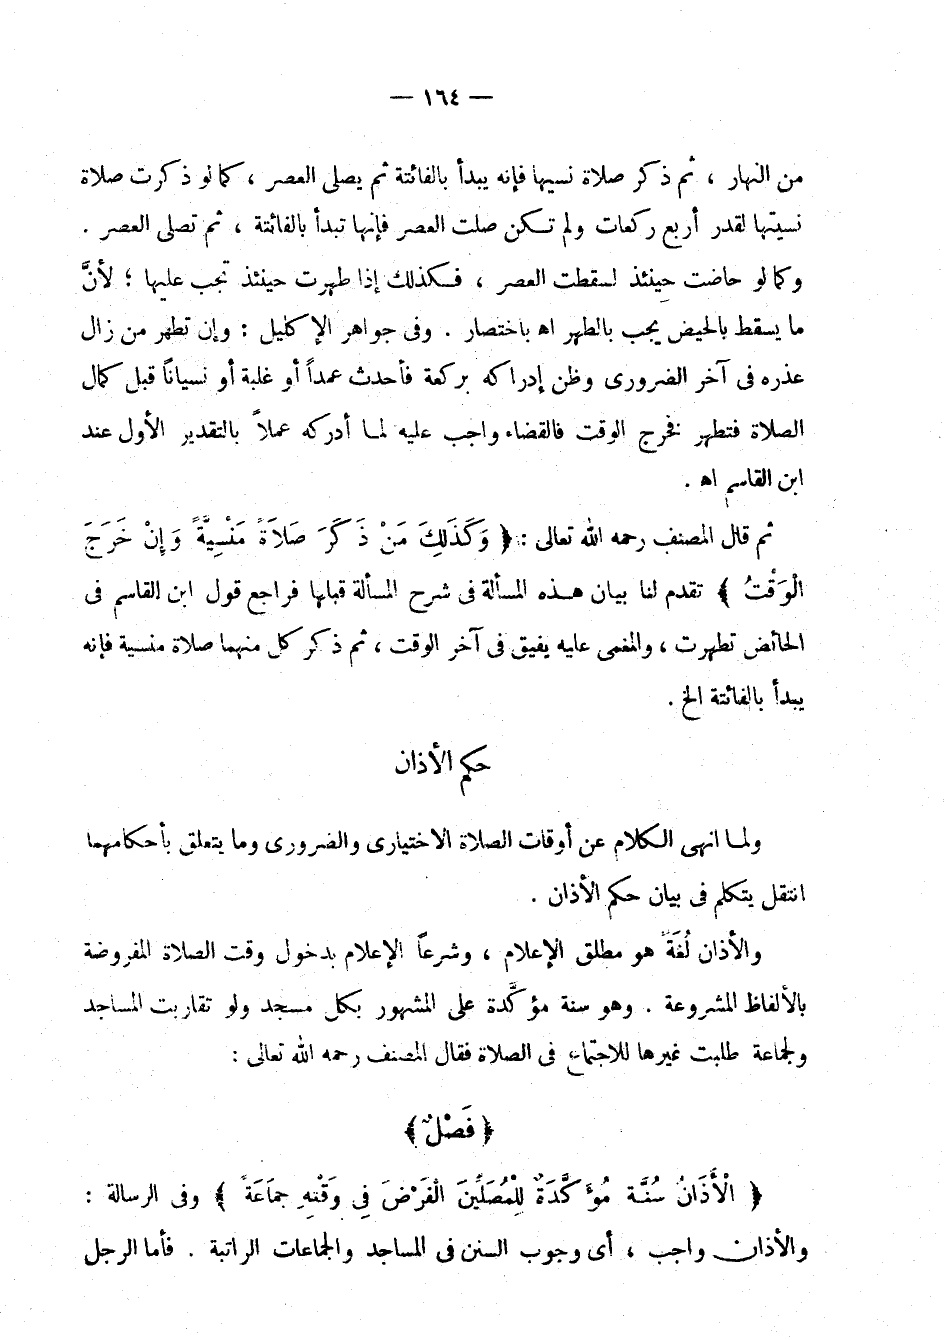 — ١٦٤ —
من النهار ، ثم ذكر صلاة نسيها فإنه يبدأ بالفائتة ثم يصلى العصر ، كما لو ذكرت صلاة
نسيتها لقدر أربع ركعات ولم تكن صلت العصر فإنها تبدأ بالفائتة ، ثم تصلى العصر .
وكما لو حاضت حينئذ لسقطت العصر ، فكذلك إذا طهرت حينئذ تجب عليها ؛ لأنَّ
ما يسقط بالحيض يجب بالطهر اه باختصار . وفى جواهر الإكليل : وإن تطهر من زال
عذره فى آخر الضرورى وظن إدراكه بركعة فأحدث عمداً أو غلبة أو نسياناً قبل كمال
الصلاة فتطهر فخرج الوقت فالقضاء واجب عليه لما أدركه عملاً بالتقدير الأول عند
ابن القاسم اه .
ثم قال المصنف رحمه الله تعالى : ﴿ وَكَذَلِكَ مَنْ ذَكَرَ صَلَاةً مَنْسِيَّةً وَإِنْ خَرَجَ
الْوَقْتُ ﴾ تقدم لنا بيان هذه المسألة فى شرح المسألة قبلها فراجع قول ابن القاسم فى
الحائض تطهرت ، والمغمى عليه يفيق فى آخر الوقت ، ثم ذكر كل منهما صلاة منسية فإنه
يبدأ بالفائتة الخ .
حكم الأذان
ولما انهى الكلام عن أوقات الصلاة الاختيارى والضرورى وما يتعلق بأحكامهما
انتقل يتكلم فى بيان حكم الأذان .
والأذان لُغَةً هو مطلق الإعلام ، وشرعاً الإعلام بدخول وقت الصلاة المفروضة
بالألفاظ المشروعة . وهو سنة مؤكَّدة على المشهور بكل مسجد ولو تقاربت المساجد
ولجماعة طلبت غيرها للاجتماع فى الصلاة فقال المصنف رحمه الله تعالى :
﴿ فَصْلٌ ﴾
﴿ الْأَذَانُ سُنَّة مُؤَكَّدَةٌ لِلْمُصَلِّينَ الْفَرْضَ فِى وَقْتِهِ جَمَاعَةً ﴾ وفى الرسالة :
والأذان واجب ، أى وجوب السنن فى المساجد والجماعات الراتبة . فأما الرجل